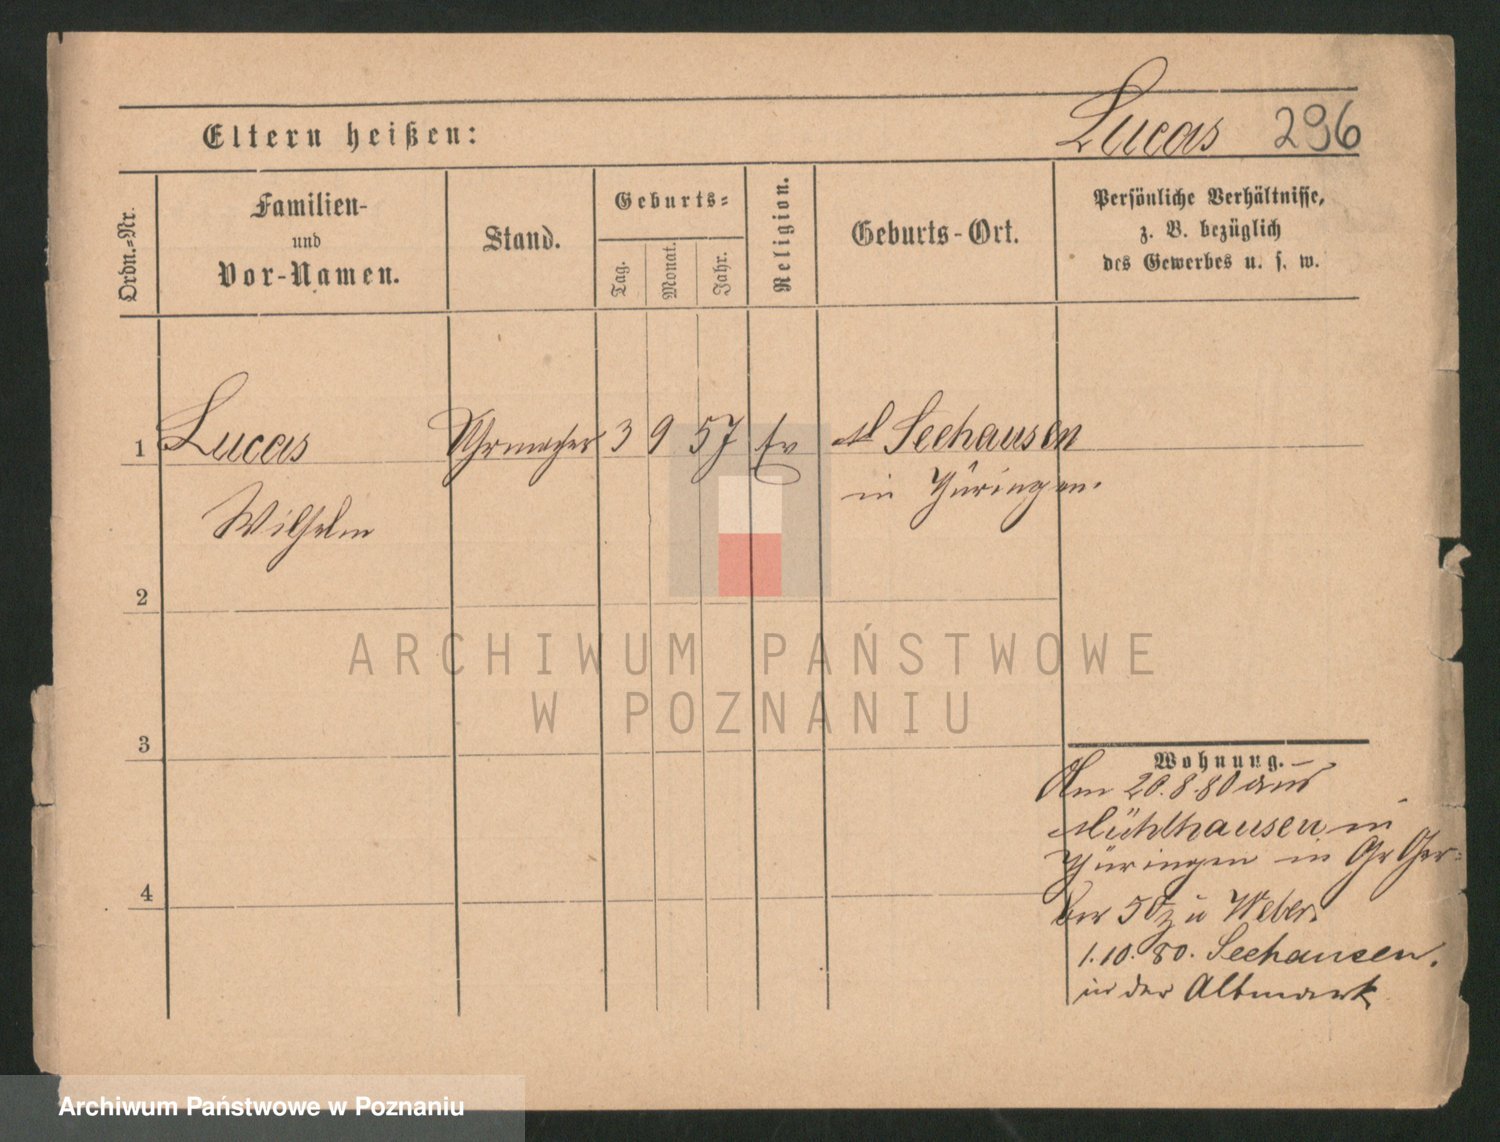 Eltern heißen:
Lucas 296
Ordn.-Nr.
Familien-
und
Vor-Namen.
Stand.
Geburts-
Tag.
Monat.
Jahr.
Religion.
Geburts-Ort.
Persönliche Verhältnisse,
z. B. bezüglich
des Gewerbes u. s. w.
1 Lucas Uhrmacher 3 9 57 Ev Seehausen
Wilhelm
in Thüringen.
2
3
4
Wohnung.
Am 20.8.80 aus
Mühlhausen in
Thüringen in Gr Ger-
ber 50 zu Weber.
1.10.80. Seehausen.
in der Altmark
ARCHIWUM PAŃSTWOWE
W POZNANIU
Archiwum Państwowe w Poznaniu